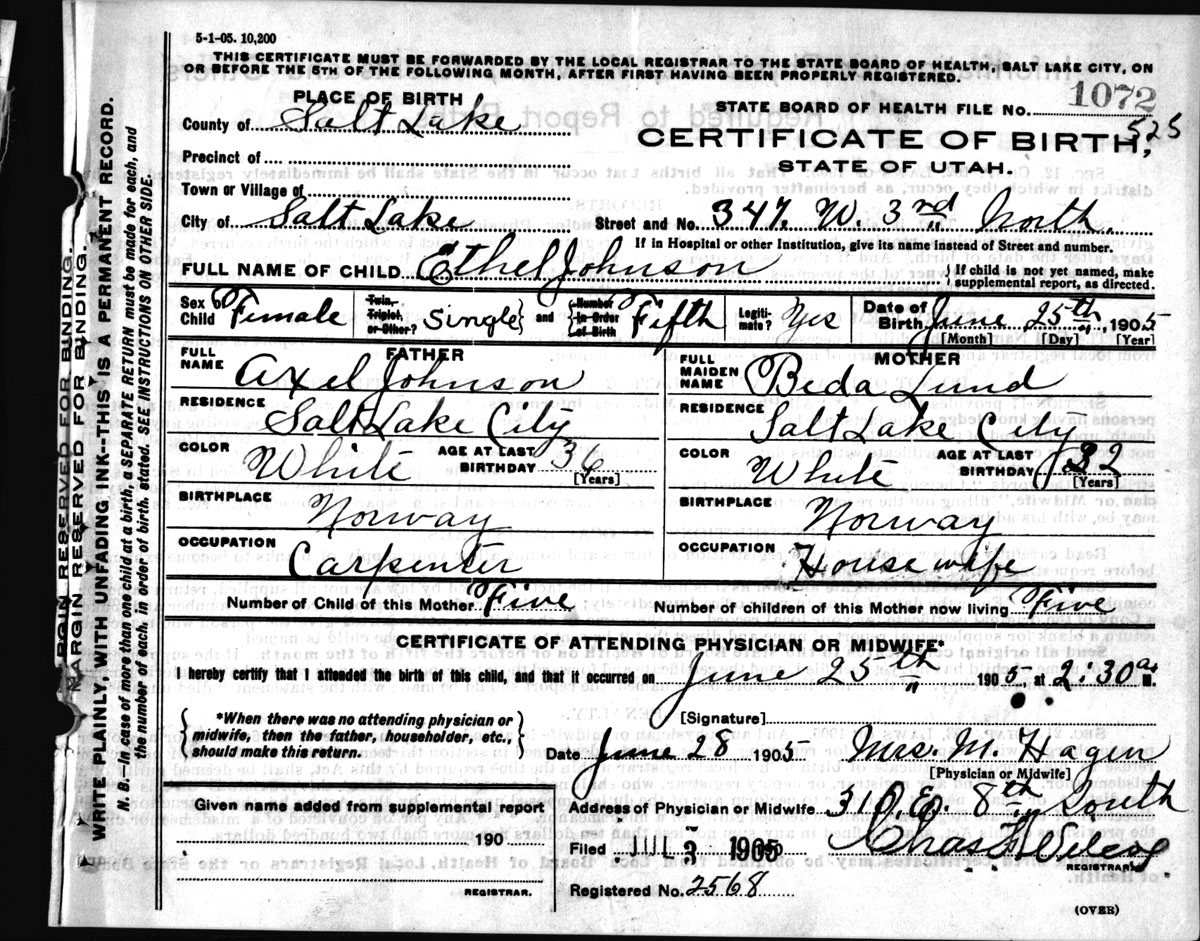 5-1-05. 10,200
THIS CERTIFICATE MUST BE FORWARDED BY THE LOCAL REGISTRAR TO THE STATE BOARD OF HEALTH, SALT LAKE CITY, ON
OR BEFORE THE 5TH OF THE FOLLOWING MONTH, AFTER FIRST HAVING BEEN PROPERLY REGISTERED.
PLACE OF BIRTH
STATE BOARD OF HEALTH FILE No. 1072
County of Salt Lake
CERTIFICATE OF BIRTH, 525
Precinct of
STATE OF UTAH.
Town or Village of
City of Salt Lake Street and No. 347. W. 3rd North.
If in Hospital or other Institution, give its name instead of Street and number.
FULL NAME OF CHILD Ethel Johnson { If child is not yet named, make
supplemental report, as directed.
Sex of Child Female Twin, Triplet, or Other? Single and Number In Order of Birth Fifth Legiti- mate? Yes Date of Birth June 25th, 1905
[Month] [Day] [Year]
FATHER
FULL NAME Axel Johnson
RESIDENCE Salt Lake City
COLOR White AGE AT LAST BIRTHDAY 36
[Years]
BIRTHPLACE Norway
OCCUPATION Carpenter
MOTHER
FULL MAIDEN NAME Beda Lund
RESIDENCE Salt Lake City
COLOR White AGE AT LAST BIRTHDAY 32
[Years]
BIRTHPLACE Norway
OCCUPATION House wife
Number of Child of this Mother Five Number of children of this Mother now living Five
CERTIFICATE OF ATTENDING PHYSICIAN OR MIDWIFE*
I hereby certify that I attended the birth of this child, and that it occurred on June 25th 1905 at 2:30 a M.
*When there was no attending physician or
midwife, then the father, householder, etc.,
should make this return.
[Signature]
Date June 28 1905 Mrs. M. Hagen
[Physician or Midwife]
Given name added from supplemental report
190
REGISTRAR.
Address of Physician or Midwife 310. E. 8th South
Filed JUL 3 1905 Chas Wilcox
REGISTRAR
Registered No. 2568
(OVER)
MARGIN RESERVED FOR BINDING.
MARGIN RESERVED FOR BINDING.
WRITE PLAINLY, WITH UNFADING INK--THIS IS A PERMANENT RECORD.
N. B.--In case of more than one child at a birth, a SEPARATE RETURN must be made for each, and
the number of each, in order of birth, stated. SEE INSTRUCTIONS ON OTHER SIDE.